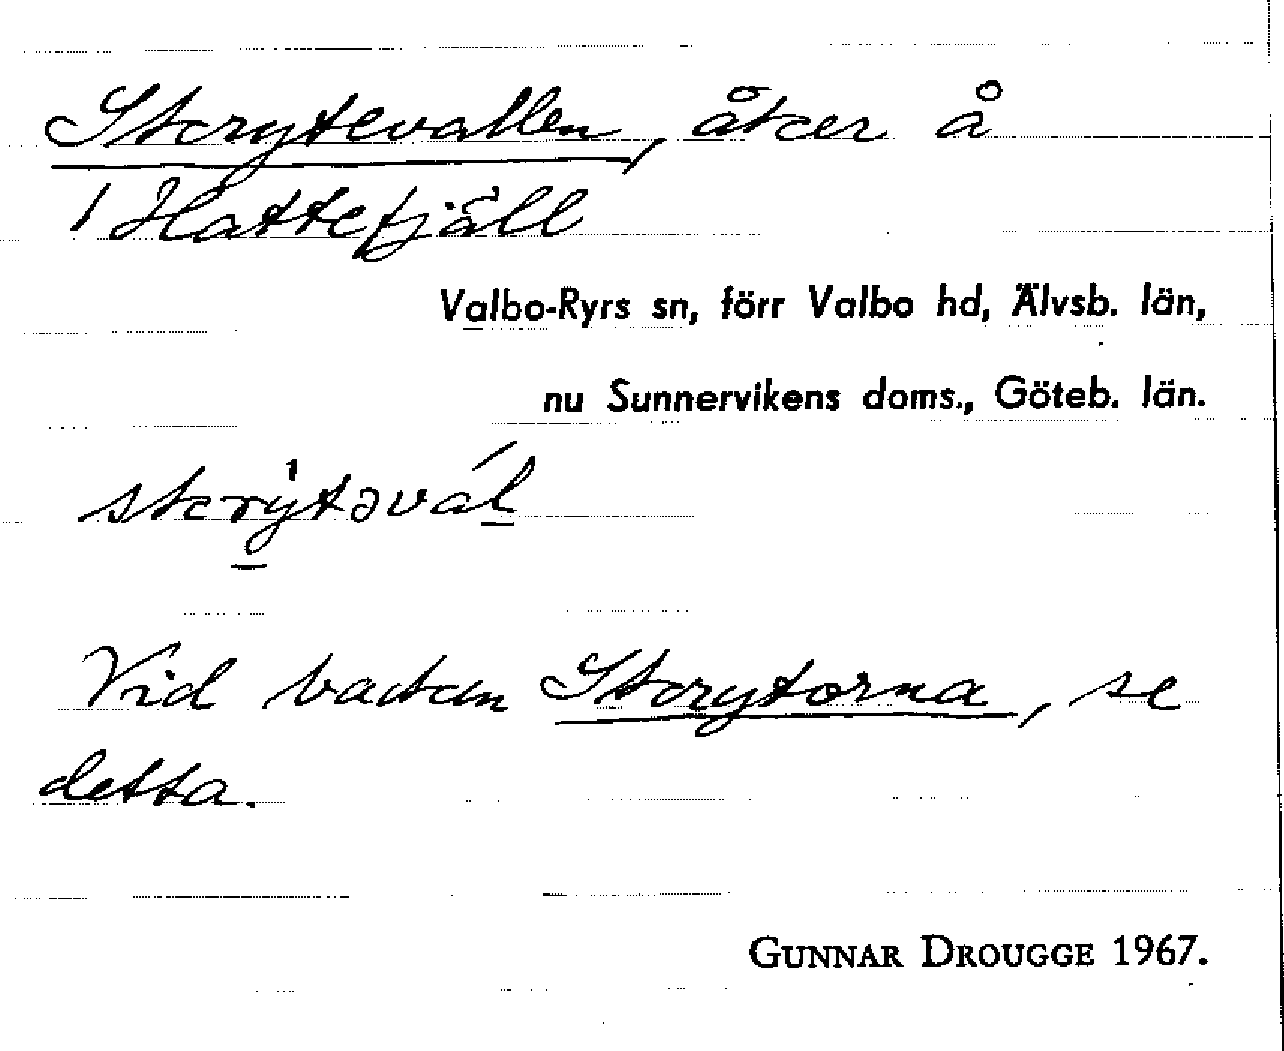 Skrytevallen, åker å
1 Hattefjäll
Valbo-Ryrs sn, förr Valbo hd, Älvsb. län,
nu Sunnervikens doms., Göteb. län.
skrýtəvál
Vid backen Skrytorna, se
detta.
GUNNAR DROUGGE 1967.